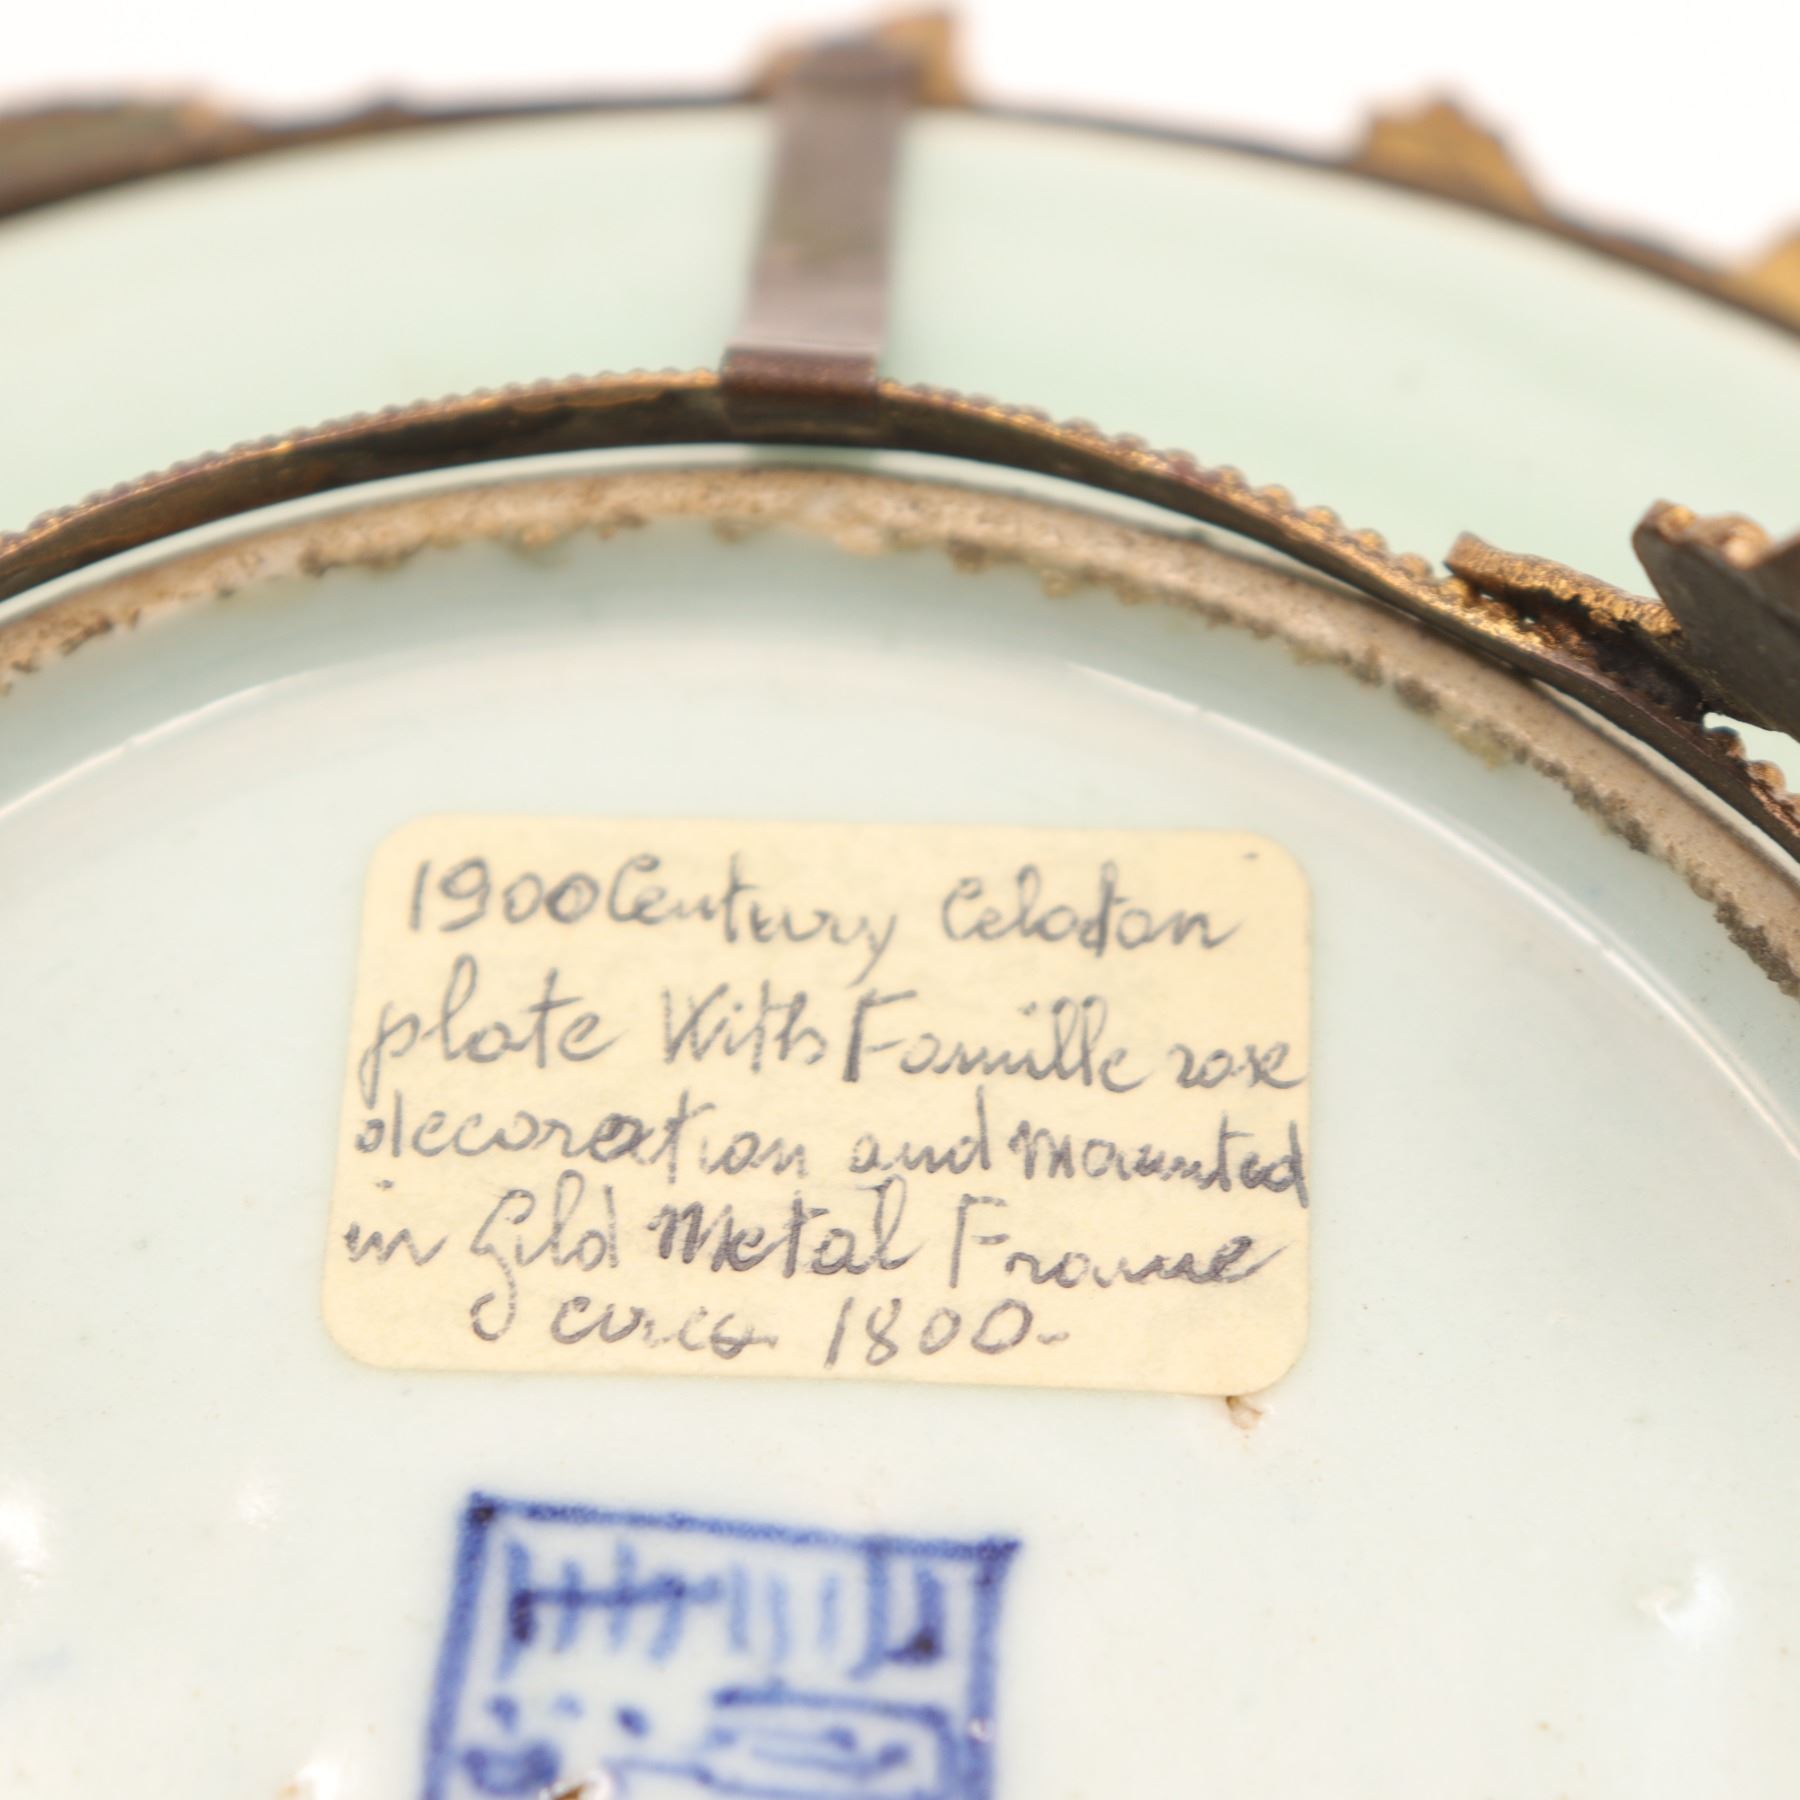 1900 Century Celadan
plate With Famille rose
decoration and Mounted
in Gild Metal Frame
circa 1800-